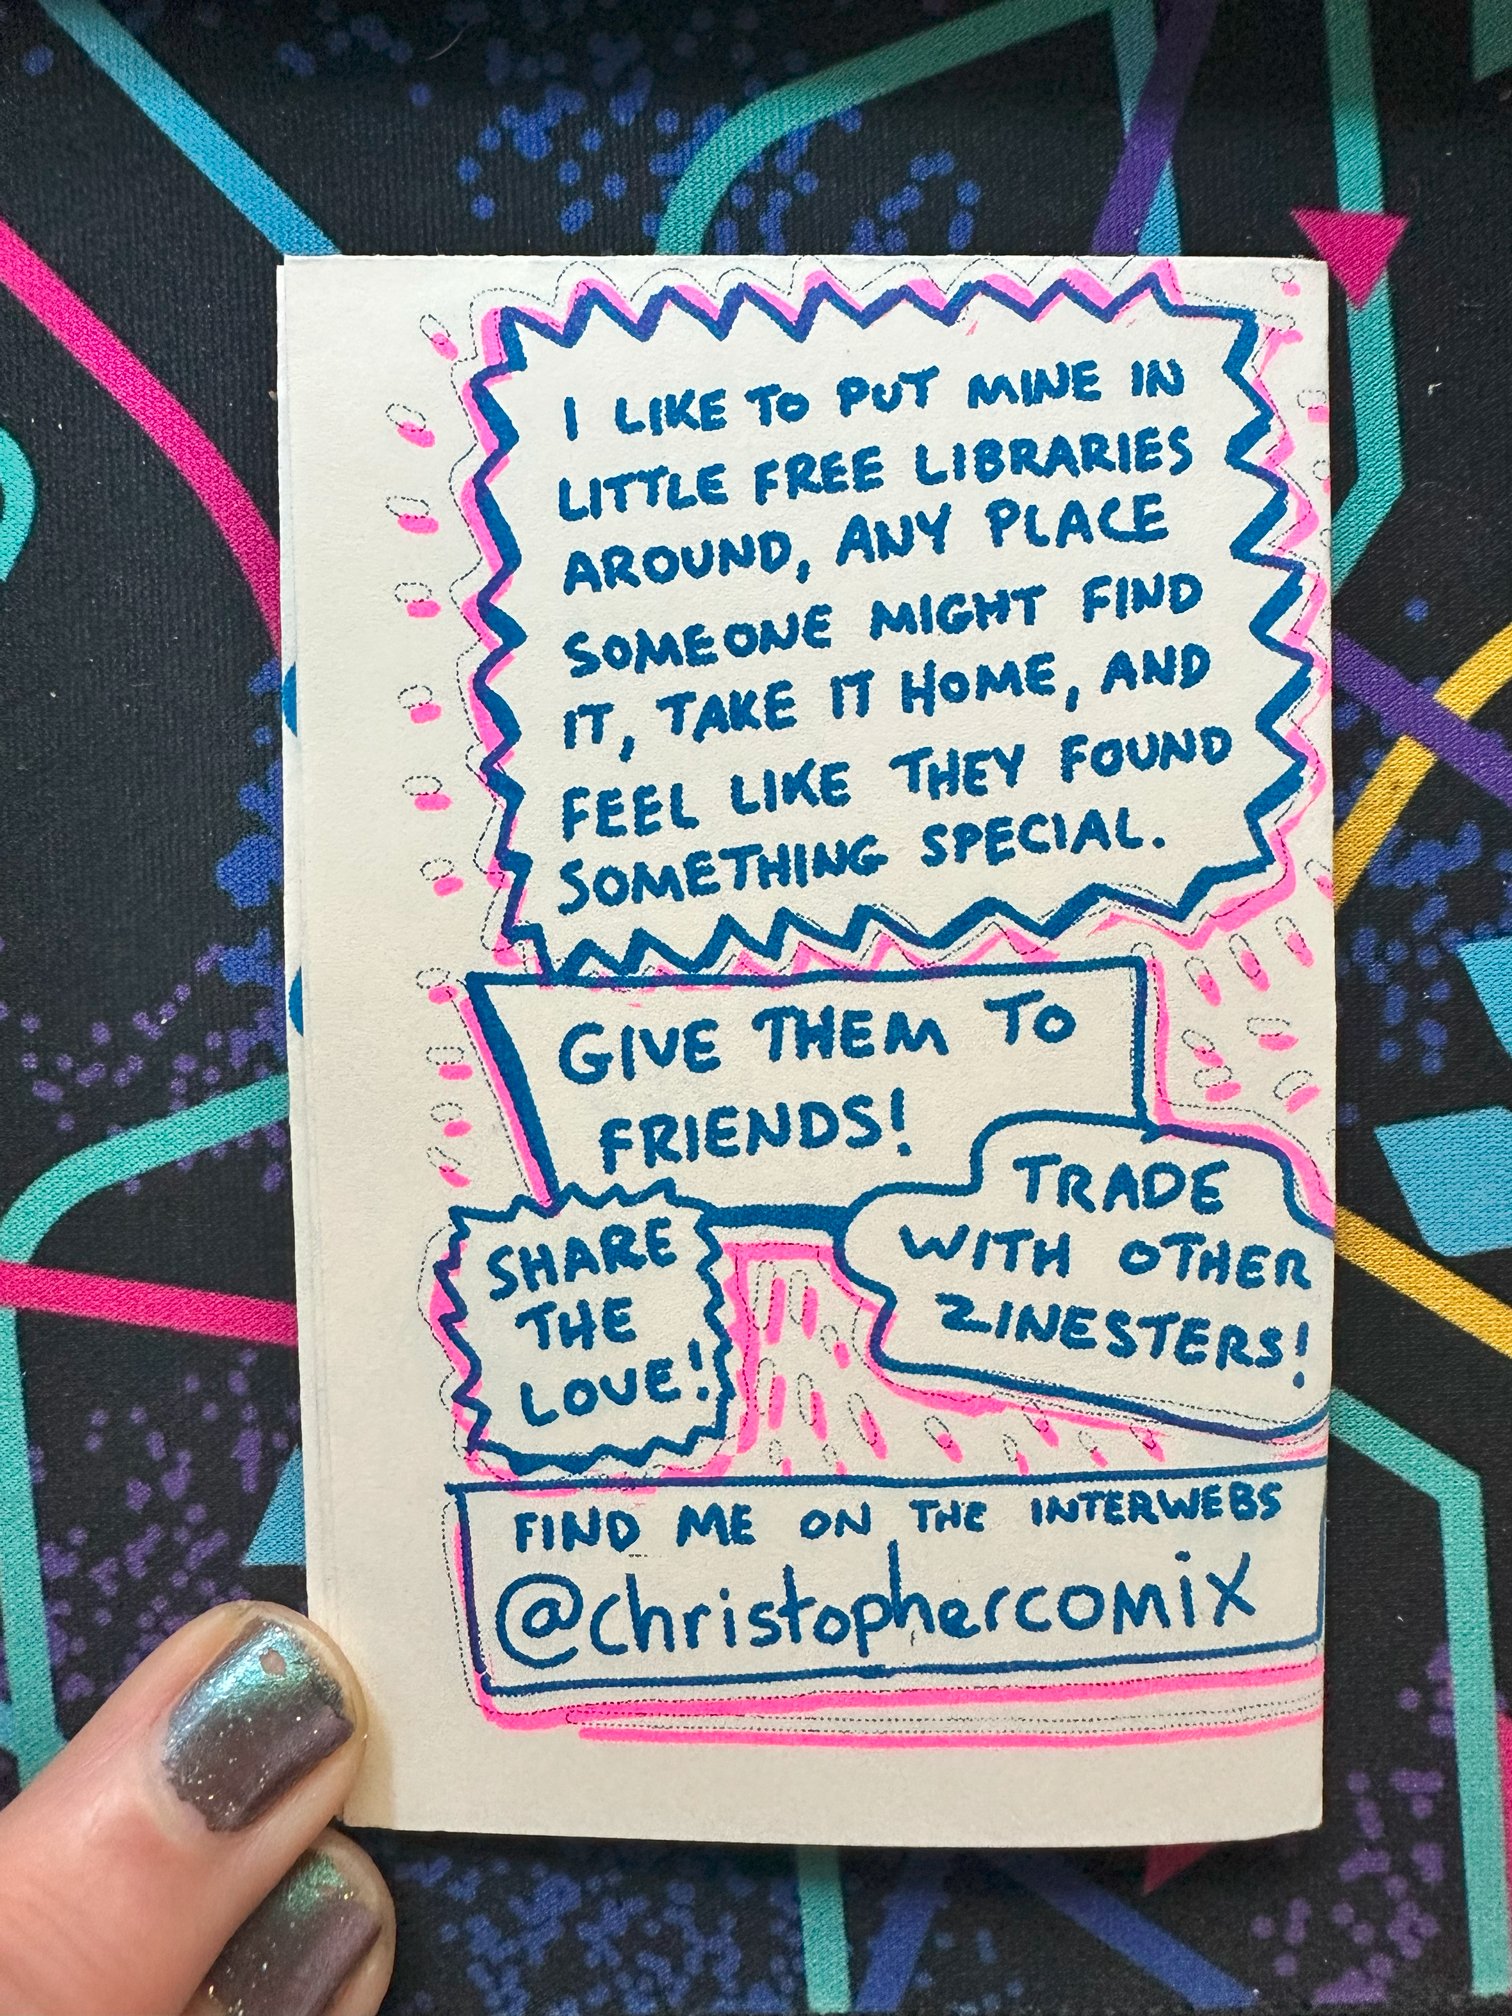 I LIKE TO PUT MINE IN
LITTLE FREE LIBRARIES
AROUND, ANY PLACE
SOMEONE MIGHT FIND
IT, TAKE IT HOME, AND
FEEL LIKE THEY FOUND
SOMETHING SPECIAL.
GIVE THEM TO
FRIENDS!
TRADE
WITH OTHER
ZINESTERS!
SHARE
THE
LOVE!
FIND ME ON THE INTERWEBS
@christophercomix